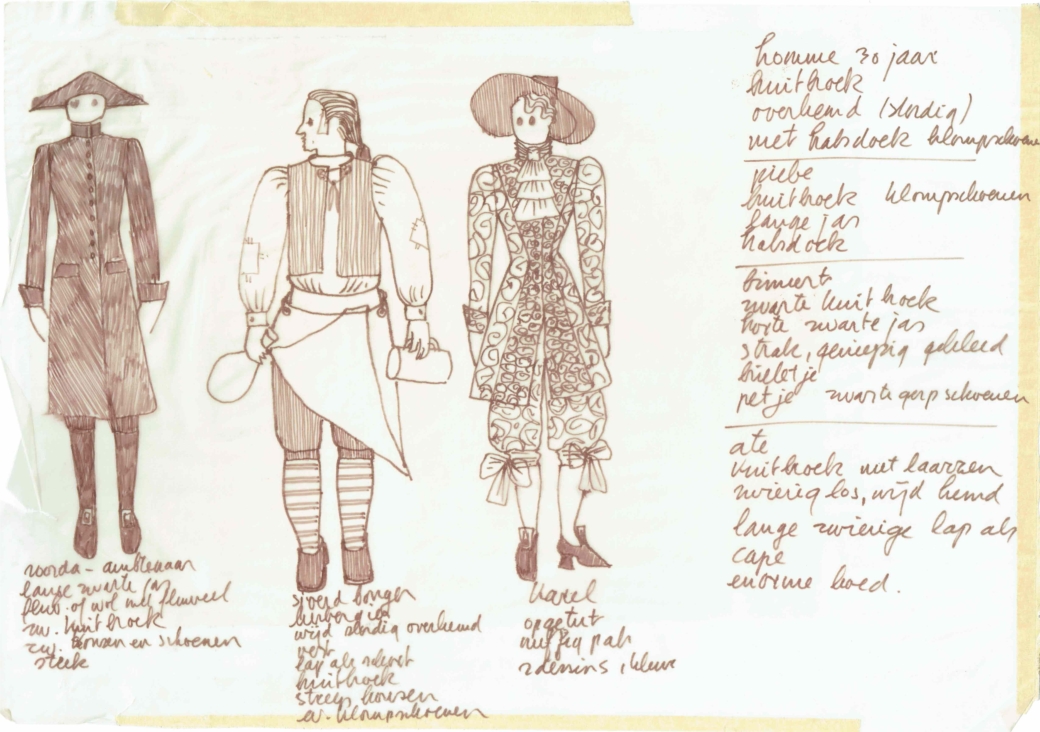 roorda - ambtenaar
lange zwarte jas
fluw. of wol met fluweel
zw. kuitbroek
zw. kousen en schoenen
steek
sjoerd bonger
wijd slordig overhemd
vest
lap als schort
kuitbroek
streep kousen
ev. klompschoenen
karel
opgetut
nuffig pak
2 dessins, 1 kleur
homme 30 jaar
kuitbroek
overhemd (slordig)
met halsdoek klompschoenen
piebe
kuitbroek klompschoenen
lange jas
halsdoek
zwarte kuitbroek
korte zwarte jas
strak, geniepig gekleed
brilletje
petje zwarte gesp schoenen
ate
kuitbroek met laarzen
zwierig los, wijd hemd
lange zwierige lap als
cape
enorme hoed.